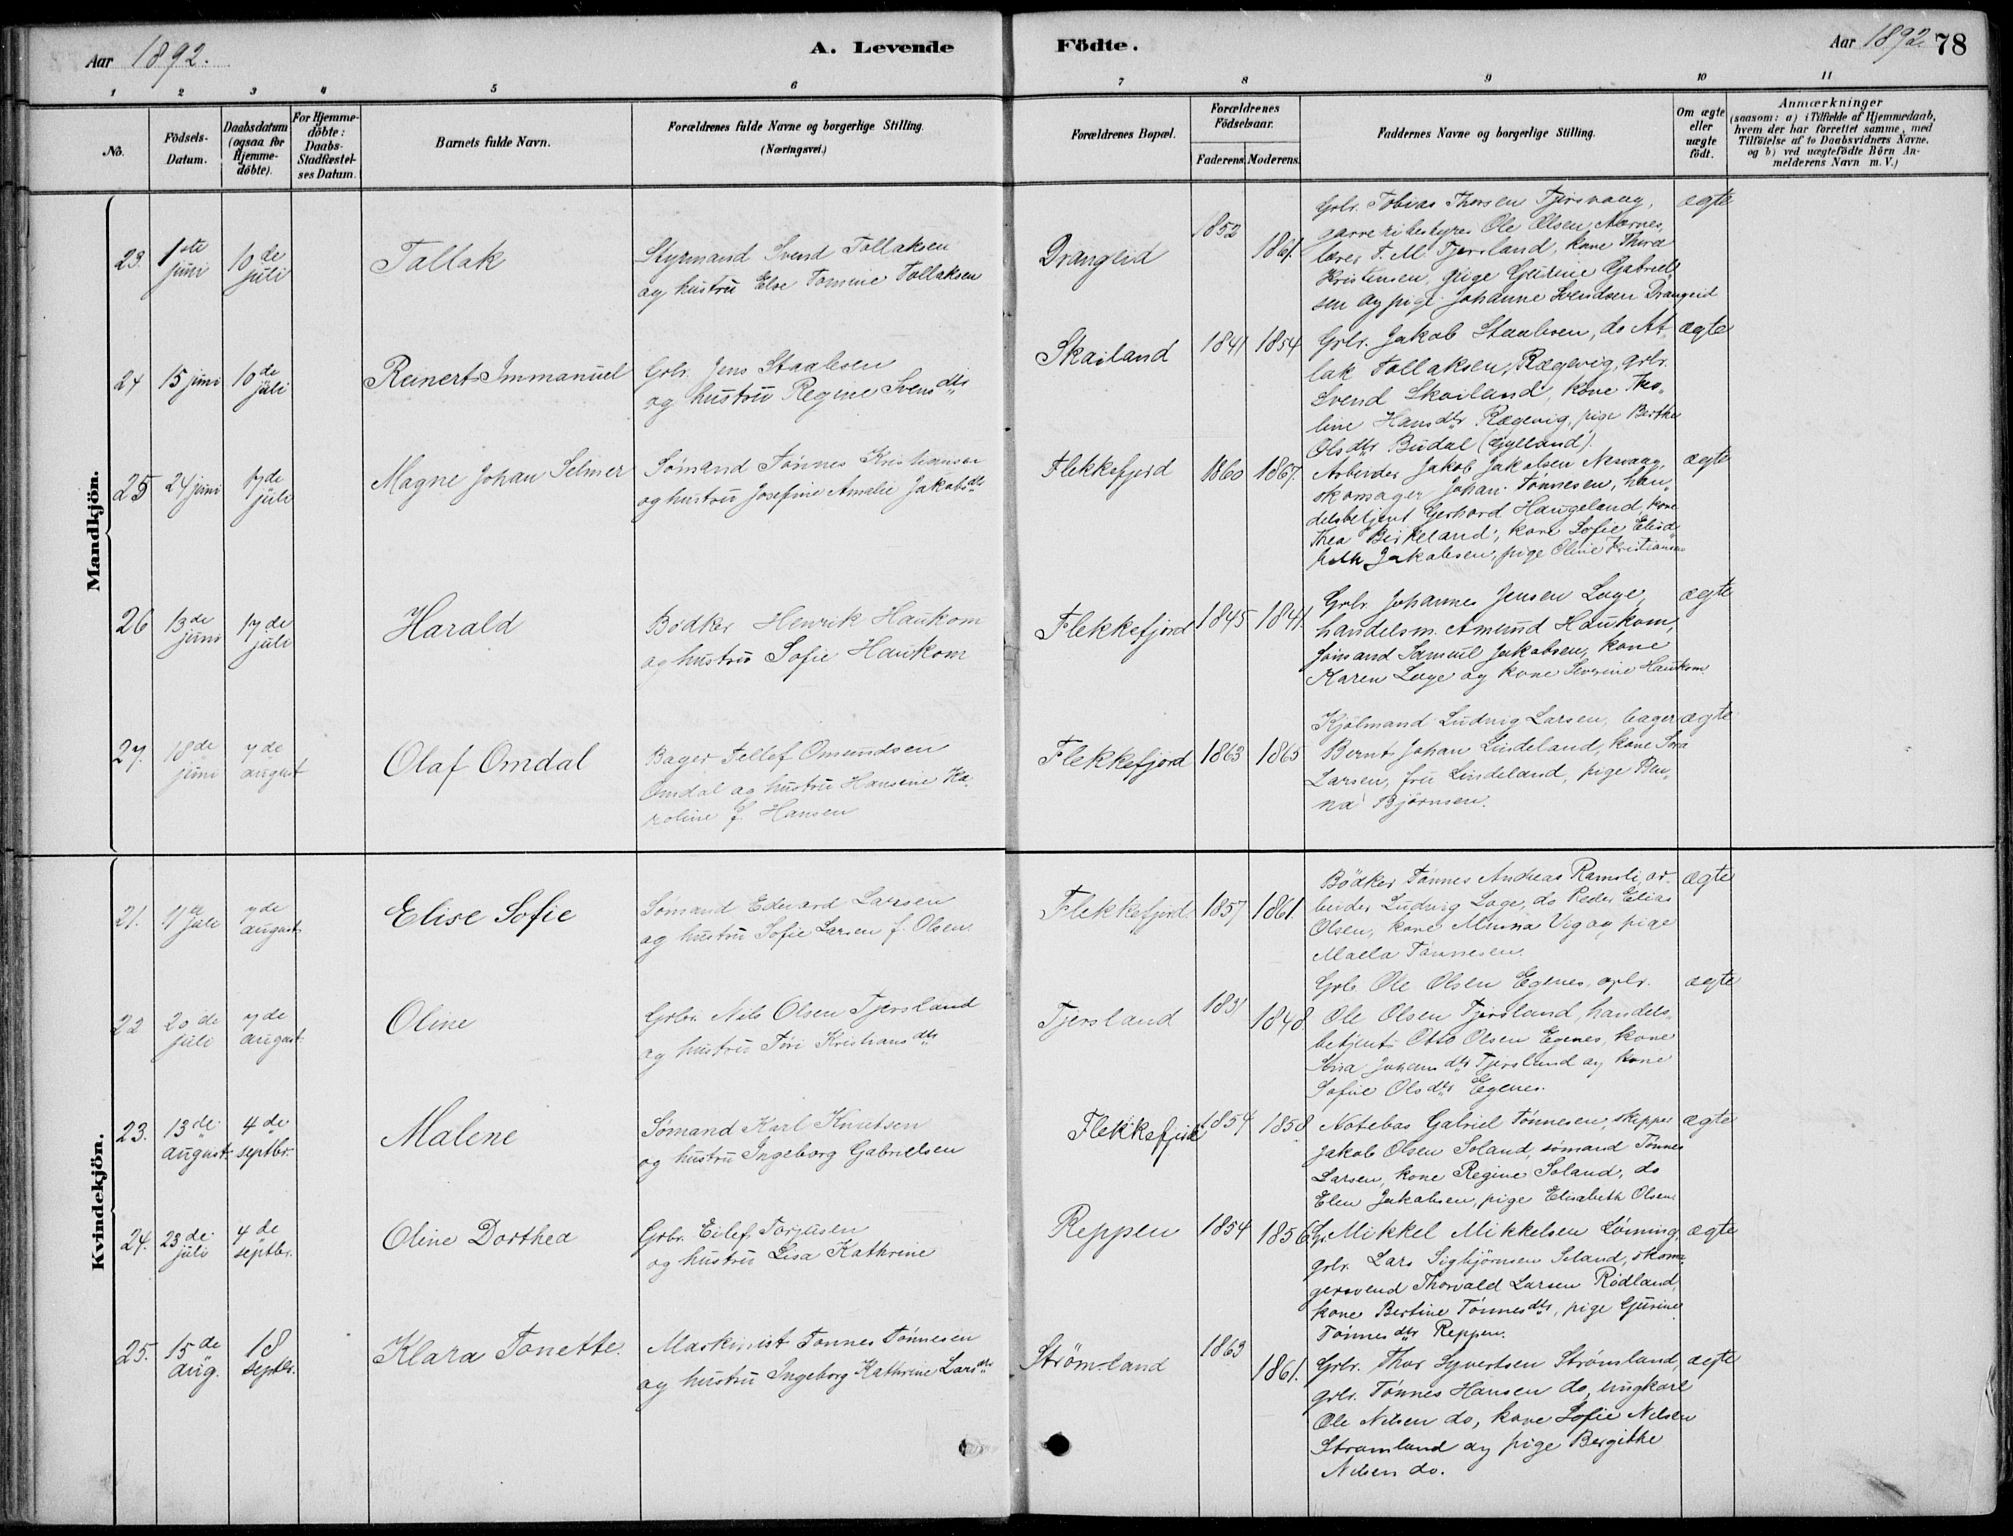 Aar 1892.
A. Levende Födte.
Aar 1892. 78
1 2 3 4 5 6 7 8 9 10 11
No.
Födsels-Datum.
Daabsdatum (ogsaa for Hjemme-döbte).
For Hjemme-döbte: Daabs-Stadfæstel-ses Datum.
Barnets fulde Navn.
Forældrenes fulde Navne og borgerlige Stilling.
(Næringsvei.)
Forældrenes Bopæl.
Forældrenes Födselsaar.
Faderens. Moderens.
Faddernes Navne og borgerlige Stilling.
Om ægte eller uægte födt.
Anmærkninger
(saasom: a) i Tilfælde af Hjemmedaab,
hvem der har forrettet samme, med
Tilföielse af to Daabsvidners Navne.
og b) ved uægtefödte Börn An-
melderens Navn m. V.)
Mandkjön.
23. 1ste juni 10de juli
Tallak
Styrmand Svend Tallaksen
og hustru Else Tomine Tallaksen
Drangeid
1852 1861.
Grbr. Tobias Thorsen Tjersvaag,
garveribestyrer Ole Olsen Aarnes,
lærer T. M. Tjersland, kone Thira
Kristensen, pige Gurine Gabriel-
sen og pige Johanne Svendsen Drangeid
ægte
24 15 juni 10de juli
Reinert Immanuel
Grbr. Jens Staalesen
og hustru Regine Svensdtr
Skailand
1841 1854
Grbr. Jakob Staalesen, do At-
lak Tallaksen, Rægevig, grbr.
Svend Skailand, kone Tho-
line Hansdtr Rægevig, pige Berthe
Olsdtr Budal (Gylland).
ægte
25 24 juni 17de juli
Magne Johan Selmer
Sömand Tönnes Kristiansen
og hustru Josefine Amalie Jakobsdtr
Flekkefjord
1860 1867.
Arbeider Jakob Jakobsen Nesvaag,
skomager Johan Tönnesen, han-
delsbetjent Gerhard Haugeland, kone
Thea Birkeland, kone Sofie Elisa-
beth Jakobsen, pige Oline Kristiansen
ægte
26 13de juni 17de juli
Harald
Bödker Henrik Haukom
og hustru Sofie Haukom
Flekkefjord
1845 1841.
Grbr. Johannes Jensen Loge,
handelsm. Amund Haukom,
sömand Samuel Jakobsen, kone
Karen Loge og kone Severine Haukom.
ægte
27. 18de juni 7de august
Olaf Omdal
Bager Tellef Omundsen
Omdal og hustru Hansine Ka-
roline f. Hansen
Flekkefjord
1863 1865
Kjölmand Ludvig Larsen, bager
Bernt Johan Lindeland, kone Sara
Larsen, fru Lindeland, pige Ben-
na Björnsen.
ægte
Kvindekjön.
21. juli 7de august
Elise Sofie
Sömand Edvard Larsen
og hustru Sofie Larsen f. Olsen
Flekkefjord
1857 1861
Bödker Tönnes Andreas Ramsli, ar-
beider Ludvig Loge, do Peder Elias
Olsen, kone Minna Vig og pige
Maela Tönnesen.
ægte
22 20de juli 7de august
Oline
Grbr. Nils Olsen Tjersland
og hustru Tori Kristiansdtr
Tjersland
1831 1848
Grbr. Ole Olsen Egenes, oplr.
Ole Olsen Tjersland, handels-
betjent Otto Olsen Egenes, kone
Stina Johansdtr Tjersland og kone
Sofie Olsdtr Egenes.
ægte
23. 13de august 4de septbr.
Malene
Sömand Karl Knutsen
og hustru Ingeborg Gabrielsen
Flekkefjord
1854 1858.
Notebas Gabriel Tönnesen, skipper
Jakob Olsen Soland, sömand Tönnes
Larsen, kone Regine Soland, do
Elen Jakobsen, pige Elisabeth Olsen.
ægte
24. 23de juli 4de septbr.
Oline Dorthea
Grbr. Eilef Torjusen
og hustru Lisa Kathrine
Reppen
1854 1856
Gr. Mikkel Mikkelsen Löining,
grbr. Lars Sigbjörnsen Seland, skoma-
gersvend Thorvald Larsen Rödland,
kone Bertine Tönnesdtr, pige Gurine
Tönnesdtr Reppen.
ægte
25. 15de aug. 18 septbr.
Klara Tonette.
Maskinist Tönnes Tönnesen
og hustru Ingeborg Kathrine Larsdtr
Strömsland
1863 1861.
Grbr. Thor Syvertsen Strömsland,
grbr. Tönnes Hansen do, ungkarl
Ole Nilsen do, kone Sofie Nilsen
Strömland og pige Bergitte
Nilsen do.
ægte